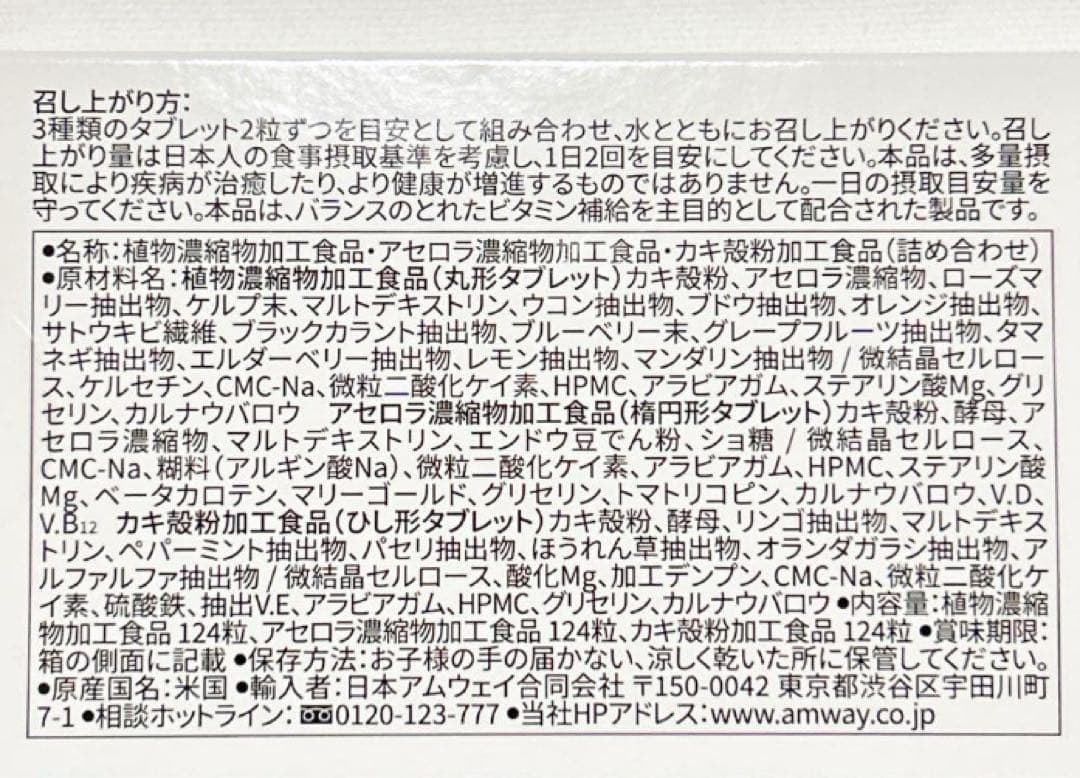 召し上がり方:
3種類のタブレット2粒ずつを目安として組み合わせ、水とともにお召し上がりください。召し
上がり量は日本人の食事摂取基準を考慮し、1日2回を目安にしてください。本品は、多量摂
取により疾病が治癒したり、より健康が増進するものではありません。一日の摂取目安量を
守ってください。本品は、バランスのとれたビタミン補給を主目的として配合された製品です。
●名称:植物濃縮物加工食品・アセロラ濃縮物加工食品・カキ殻粉加工食品(詰め合わせ)
●原材料名:植物濃縮物加工食品(丸形タブレット)カキ殻粉、アセロラ濃縮物、ローズマ
リー抽出物、ケルプ末、マルトデキストリン、ウコン抽出物、ブドウ抽出物、オレンジ抽出物、
サトウキビ繊維、ブラックカラント抽出物、ブルーベリー末、グレープフルーツ抽出物、タマ
ネギ抽出物、エルダーベリー抽出物、レモン抽出物、マンダリン抽出物 / 微結晶セルロー
ス、ケルセチン、CMC-Na、微粒二酸化ケイ素、HPMC、アラビアガム、ステアリン酸Mg、グリ
セリン、カルナウバロウ アセロラ濃縮物加工食品(楕円形タブレット)カキ殻粉、酵母、ア
セロラ濃縮物、マルトデキストリン、エンドウ豆でん粉、ショ糖 / 微結晶セルロース、
CMC-Na、糊料(アルギン酸Na)、微粒二酸化ケイ素、アラビアガム、HPMC、ステアリン酸
Mg、ベータカロテン、マリーゴールド、グリセリン、トマトリコピン、カルナウバロウ、V.D、
V.B12 カキ殻粉加工食品(ひし形タブレット)カキ殻粉、酵母、リンゴ抽出物、マルトデキス
トリン、ペパーミント抽出物、パセリ抽出物、ほうれん草抽出物、オランダガラシ抽出物、ア
ルファルファ抽出物 / 微結晶セルロース、酸化Mg、加工デンプン、CMC-Na、微粒二酸化ケ
イ素、硫酸鉄、抽出V.E、アラビアガム、HPMC、グリセリン、カルナウバロウ ●内容量:植物濃縮
物加工食品 124粒、アセロラ濃縮物加工食品 124粒、カキ殻粉加工食品 124粒 ●賞味期限:
箱の側面に記載 ●保存方法:お子様の手の届かない、涼しく乾いた所に保管してください。
●原産国名:米国 ●輸入者:日本アムウェイ合同会社 〒150-0042 東京都渋谷区宇田川町
7-1 ●相談ホットライン:0120-123-777 ●当社HPアドレス:www.amway.co.jp